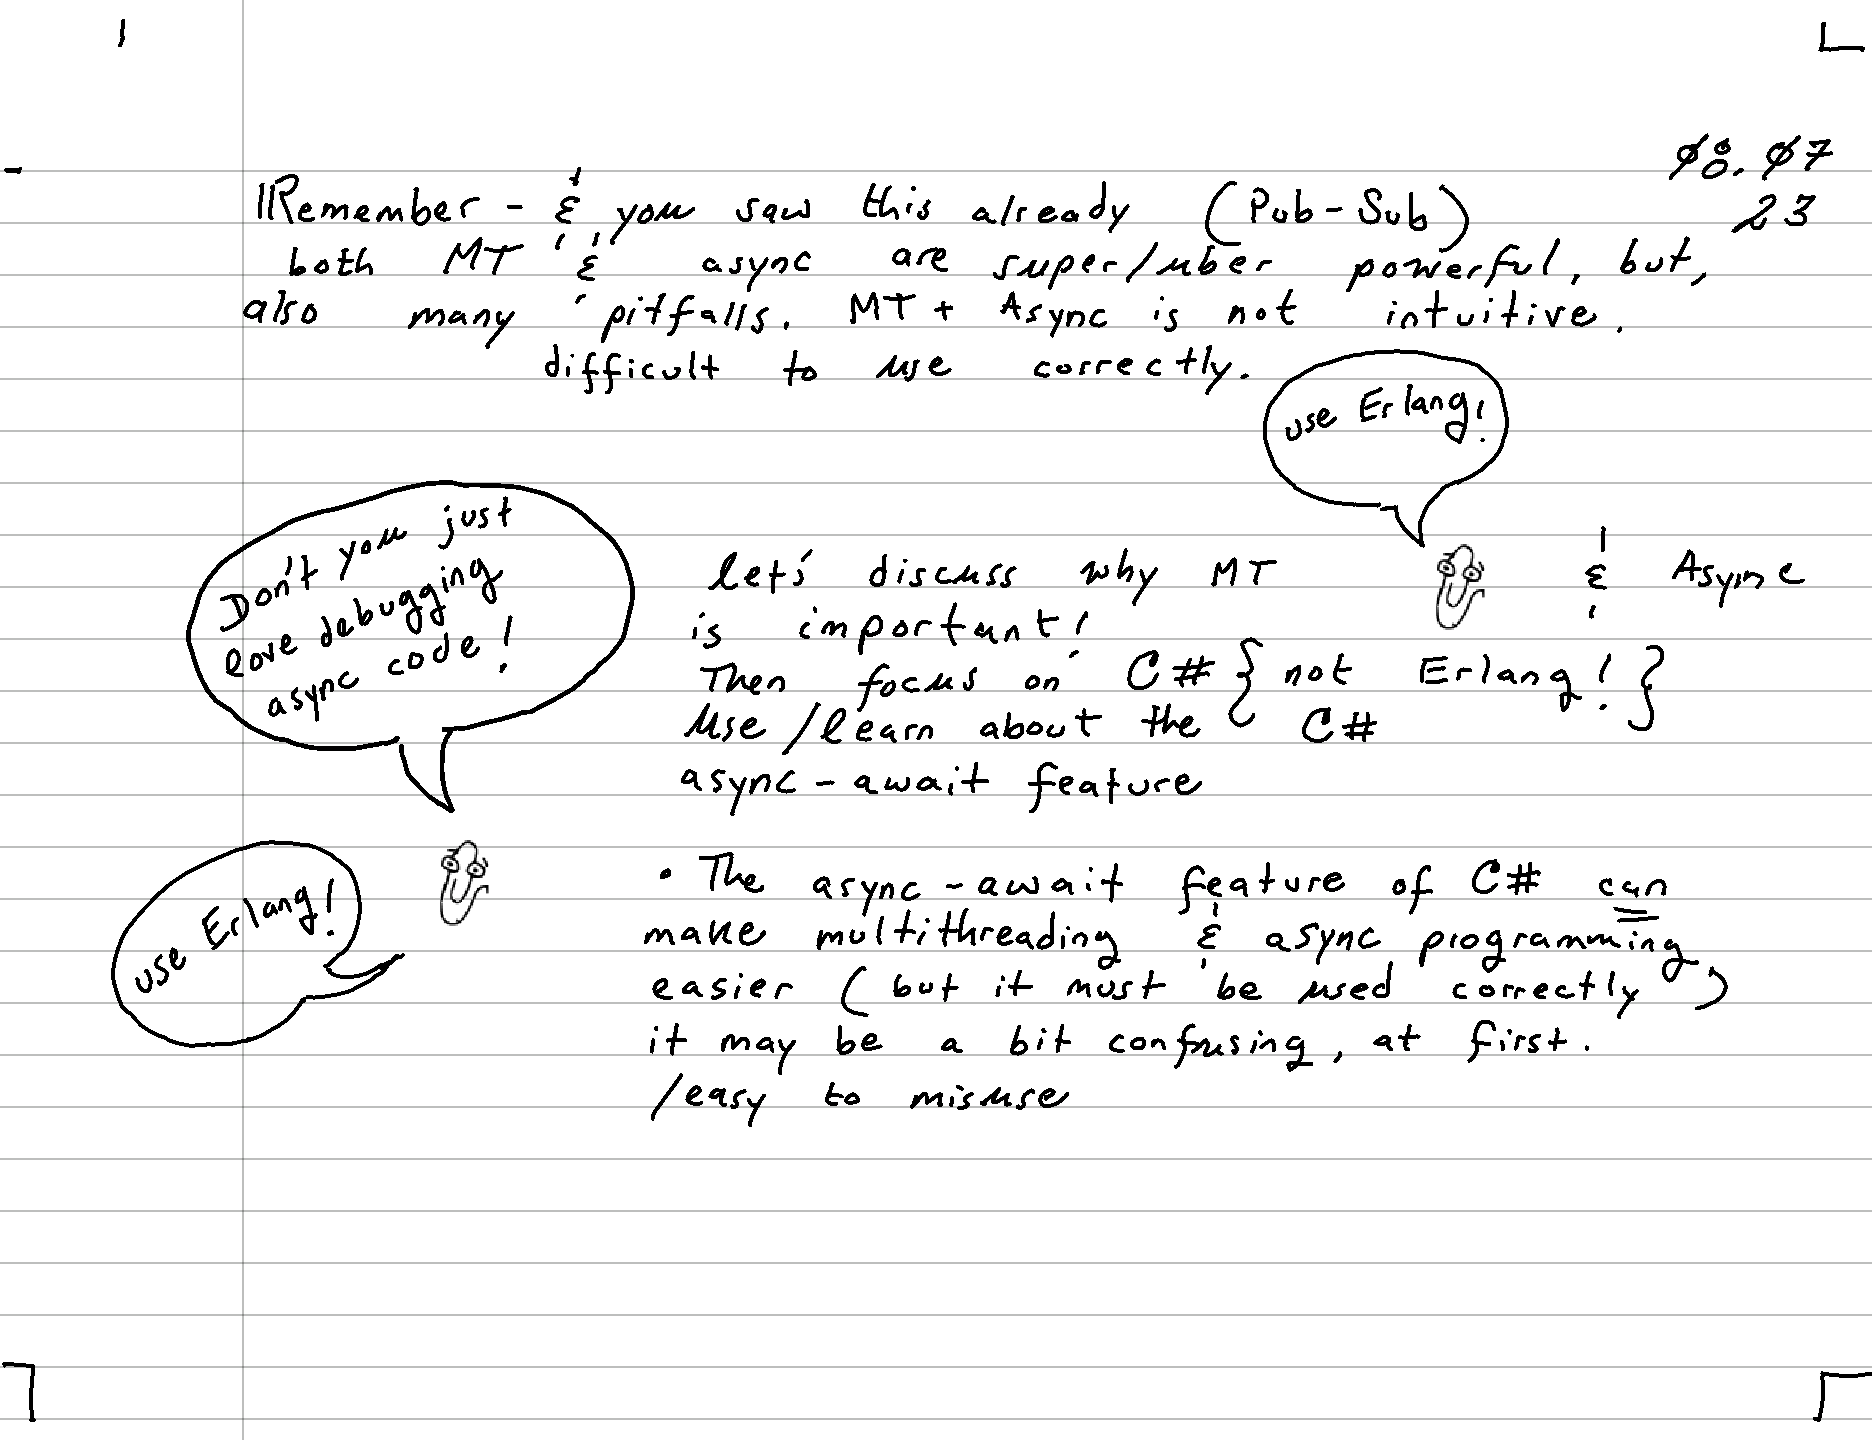 08.07
23
Remember - & you saw this already (Pub-Sub)
both MT & async are super/uber powerful, but,
also many pitfalls. MT + Async is not intuitive.
difficult to use correctly.
use Erlang!
Don't you just
love debugging
async code!
let's discuss why MT & Async
is important!
Then focus on C# { not Erlang! }
Use /learn about the C#
async-await feature
use Erlang!
• The async-await feature of C# can
make multithreading & async programming
easier (but it must be used correctly)
it may be a bit confusing, at first.
/easy to misuse